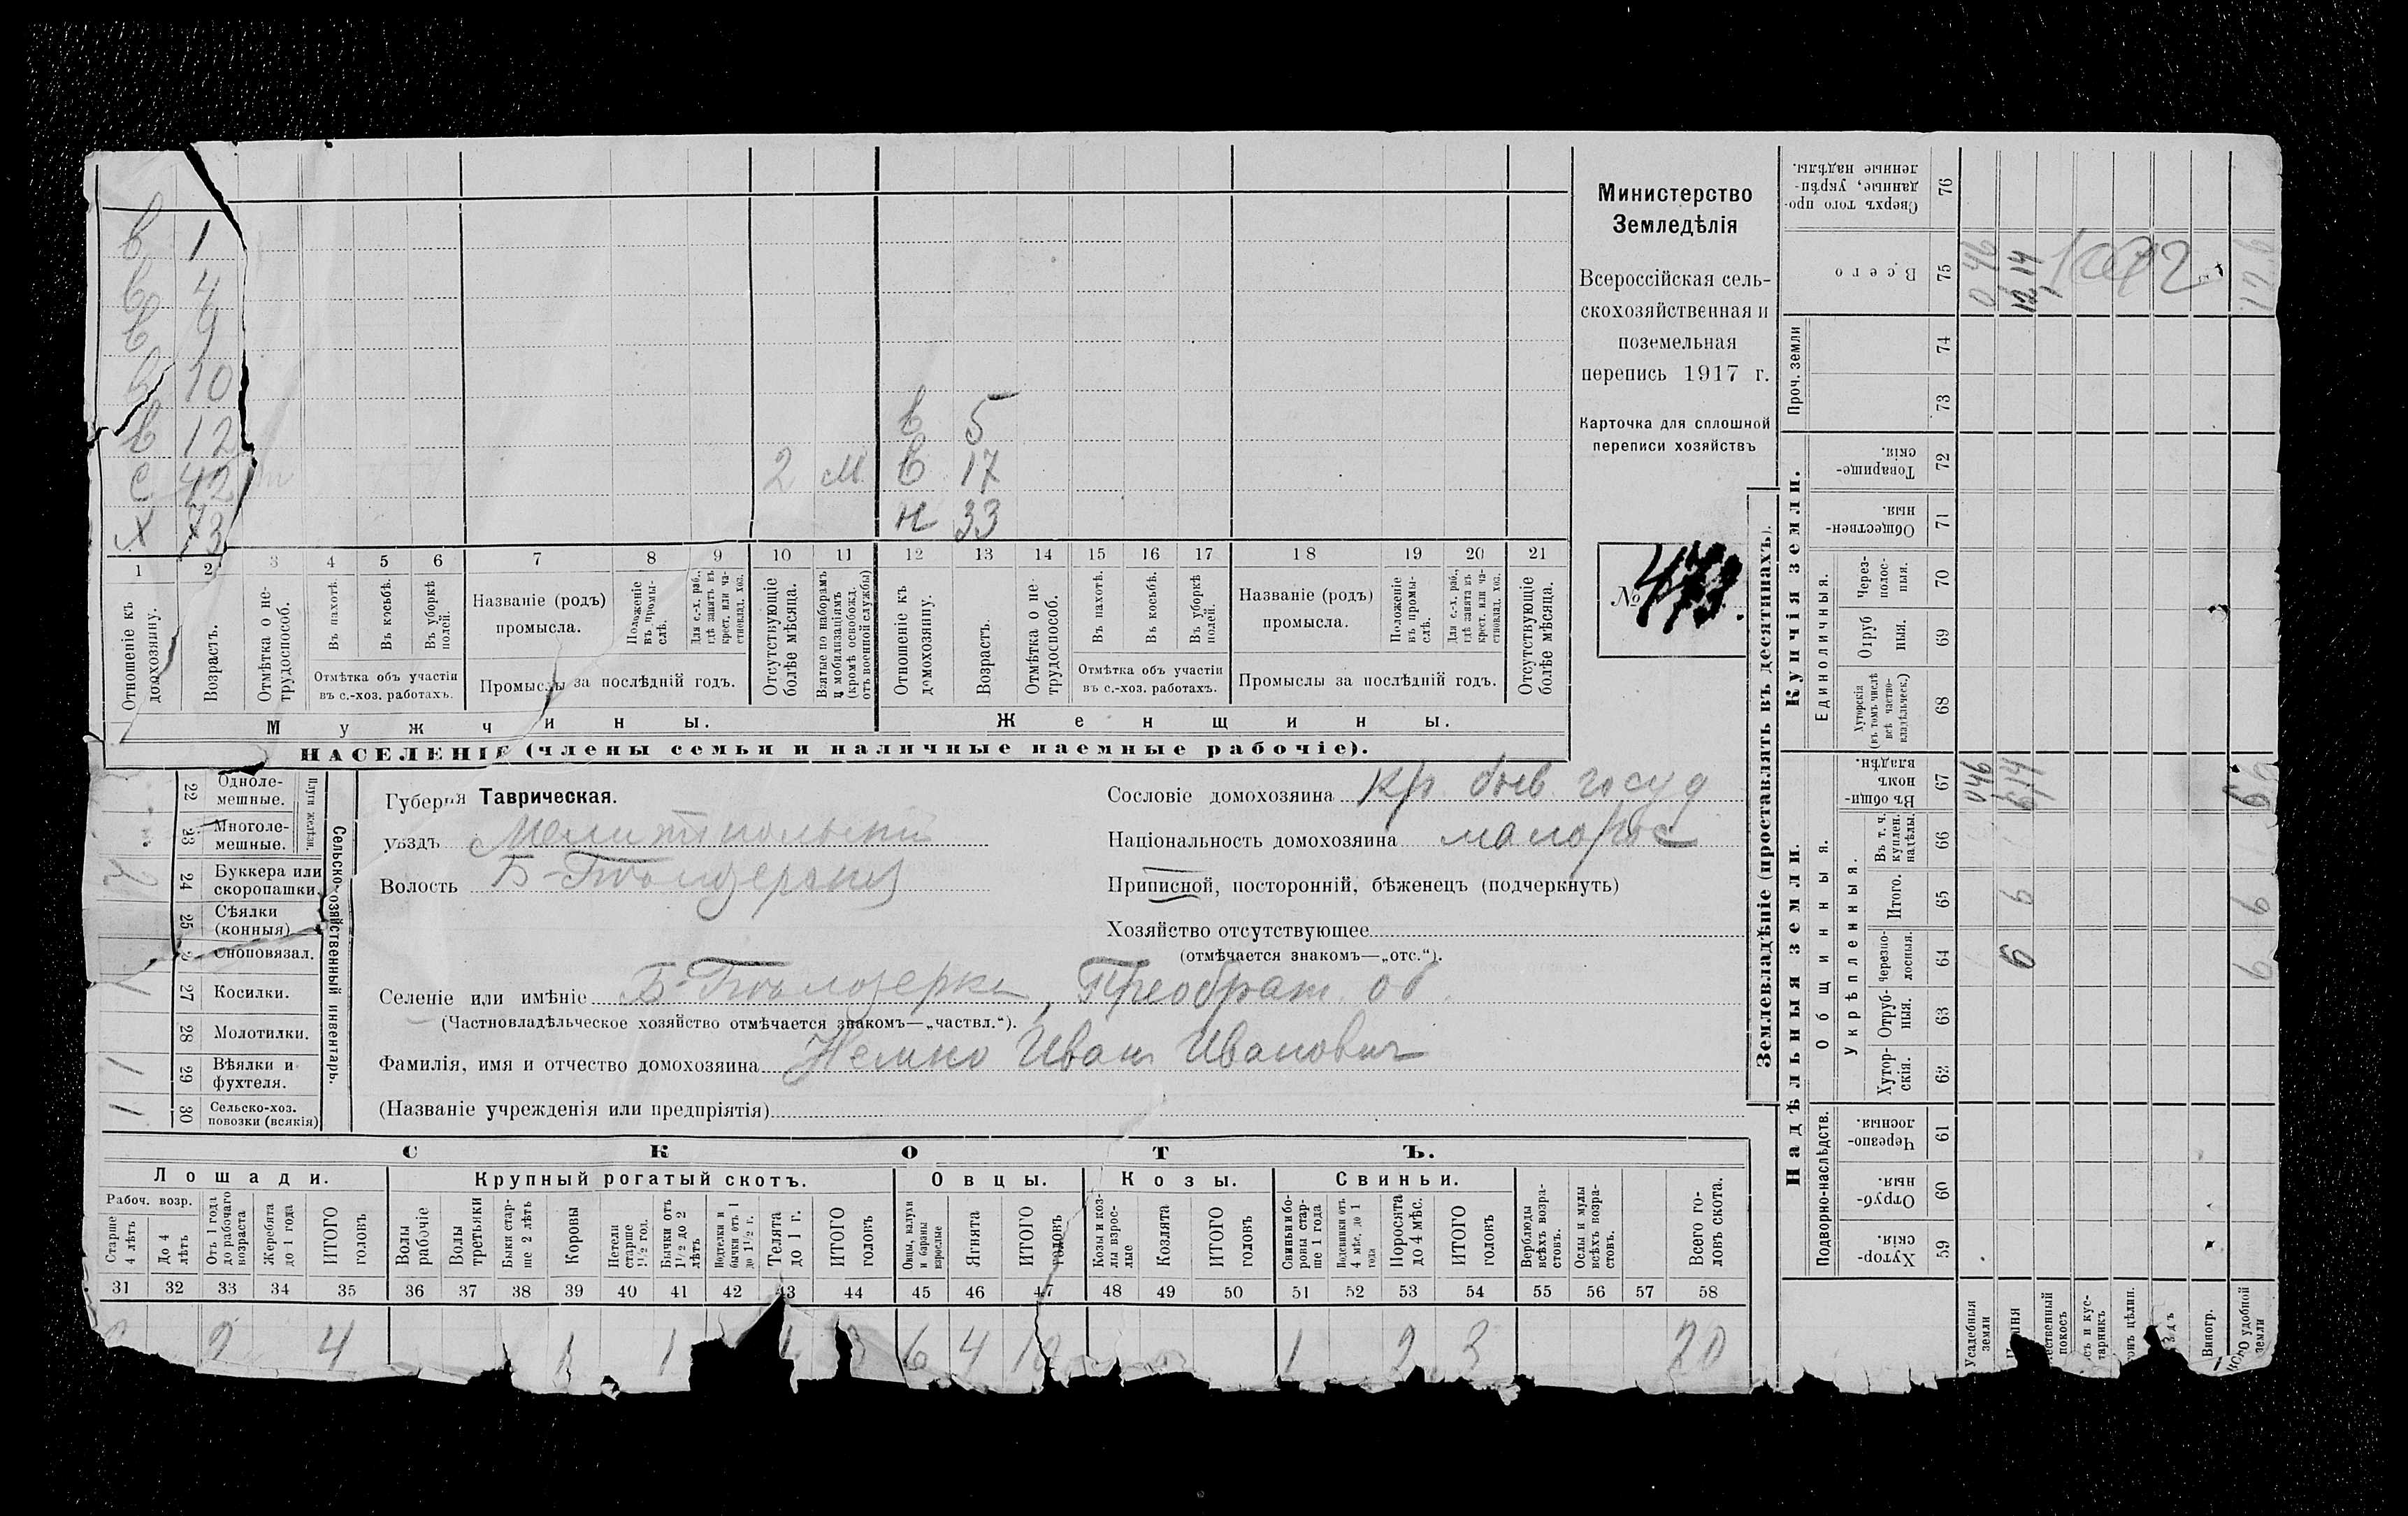 Министерство
Земледѣлія
Всероссійская сель-
скохозяйственная и
поземельная
перепись 1917 г.
Карточка для сплошной
переписи хозяйствъ
№ 473.
в 1
в 4
в 9
в 10
в 12 в 5
с 42 2 м. в 17
х 73 н 33
1 2 3 4 5 6 7 8 9 10 11 12 13 14 15 16 17 18 19 20 21
Отношеніе къ домохозяину.
Возрастъ.
Отмѣтка о не-
трудоспособ.
Въ пахотѣ.
Въ косьбѣ.
Въ уборкѣ
полей.
Отмѣтка объ участіи
въ с.-хоз. работахъ.
Названіе (родъ)
промысла.
Положеніе
въ промы-
слѣ.
Для с.-х. раб.,
гдѣ занятъ въ
крест. или ча-
стновлад. хоз.
Промыслы за послѣдній годъ.
Отсутствующіе
болѣе мѣсяца.
Взятые по наборамъ
и мобилизаціямъ
(кромѣ освобожд.
отъ военной службы)
Отношеніе къ
домохозяину.
Возрастъ.
Отмѣтка о не-
трудоспособ.
Въ пахотѣ.
Въ косьбѣ.
Въ уборкѣ
полей.
Отмѣтка объ участіи
въ с.-хоз. работахъ.
Названіе (родъ)
промысла.
Положеніе
въ промы-
слѣ.
Для с.-х. раб.,
гдѣ занята въ
крест. или ча-
стновлад. хоз.
Промыслы за послѣдній годъ.
Отсутствующіе
болѣе мѣсяца.
Мужчины. Женщины.
НАСЕЛЕНІЕ (члены семьи и наличные наемные рабочіе).
Сельско-хозяйственный инвентарь.
Плуги желѣзн.
22 Одноле-
мешные.
23 Многоле-
мешные.
24 Буккера или
скоропашки.
25 Сѣялки
(конныя)
Сноповязал.
27 Косилки. 1
28 Молотилки.
29 Вѣялки и
фухтеля. 1
30 Сельско-хоз.
повозки (всякія) 1
Губернія Таврическая.
уѣздъ Мелитопольскій
Волость Б-Бѣлозерская
Сословіе домохозяина кр. быв госуд
Національность домохозяина малорос
Приписной, посторонній, бѣженецъ (подчеркнуть)
Хозяйство отсутствующее
(отмѣчается знакомъ—„отс.“).
Селеніе или имѣніе Б-Бѣлозерка, Преображ. об.
(Частновладѣльческое хозяйство отмѣчается знакомъ—„частвл.“).
Фамилія, имя и отчество домохозяина Немко Иван Иванович
(Названіе учрежденія или предпріятія)
СКОТЪ.
Лошади. Крупный рогатый скотъ. Овцы. Козы. Свиньи.
Рабоч. возр.
Старше
4 лѣтъ
До 4
лѣтъ
Отъ 1 года
до рабочаго
возраста
Жеребята
до 1 года
ИТОГО
головъ
Волы
рабочіе
Волы
третьяки
Быки стар-
ше 2 лѣтъ
Коровы
Нетели
старше
1½ год.
Бычки отъ
1½ до 2
лѣтъ
Подтелки и
бычки отъ 1
до 1½ г.
Телята
до 1 г.
ИТОГО
головъ
Овцы, валухи
и бараны
взрослые
Ягнята
ИТОГО
головъ
Козы и коз-
лы взрос-
лые
Козлята
ИТОГО
головъ
Свиньи и бо-
ровы стар-
ше 1 года
Подсвинки отъ
4 мѣс. до 1
года
Поросята
до 4 мѣс.
ИТОГО
головъ
Верблюды
всѣхъ возра-
стовъ.
Ослы и мулы
всѣхъ возра-
стовъ.
Всего го-
ловъ скота.
31 32 33 34 35 36 37 38 39 40 41 42 43 44 45 46 47 48 49 50 51 52 53 54 55 56 57 58
2 4 1 1 1 3 6 4 10 1 2 3 20
Землевладѣніе (проставлять въ десятинахъ).
Надѣльныя земли. Купчія земли.
Проч. земли
Сверхъ того про-
данные, укрѣп-
ленные надѣлы.
76
Всего
75
74
73
Товарище-
скія.
72
Обществен-
ныя.
71
Единоличныя.
Черес-
полос-
ныя.
70
Отруб
ныя.
69
Хуторскія
(въ томъ числѣ
всѣ частно-
владѣльческ.)
68
Общинныя.
Въ общи-
номъ
владѣн.
67
Укрѣпленныя.
Въ т. ч.
куплен.
надѣлы.
66
Итого.
65
Черезпо-
лосныя.
64
Отруб-
ныя.
63
Хутор-
скія.
62
Подворно-наслѣдств.
Черезпо-
лосныя.
61
Отруб-
ныя.
60
Хутор-
скія.
59
Усадебная
земли
Виногр.
удобной
земли
0 46
12 14
046
614
6
6
6
6